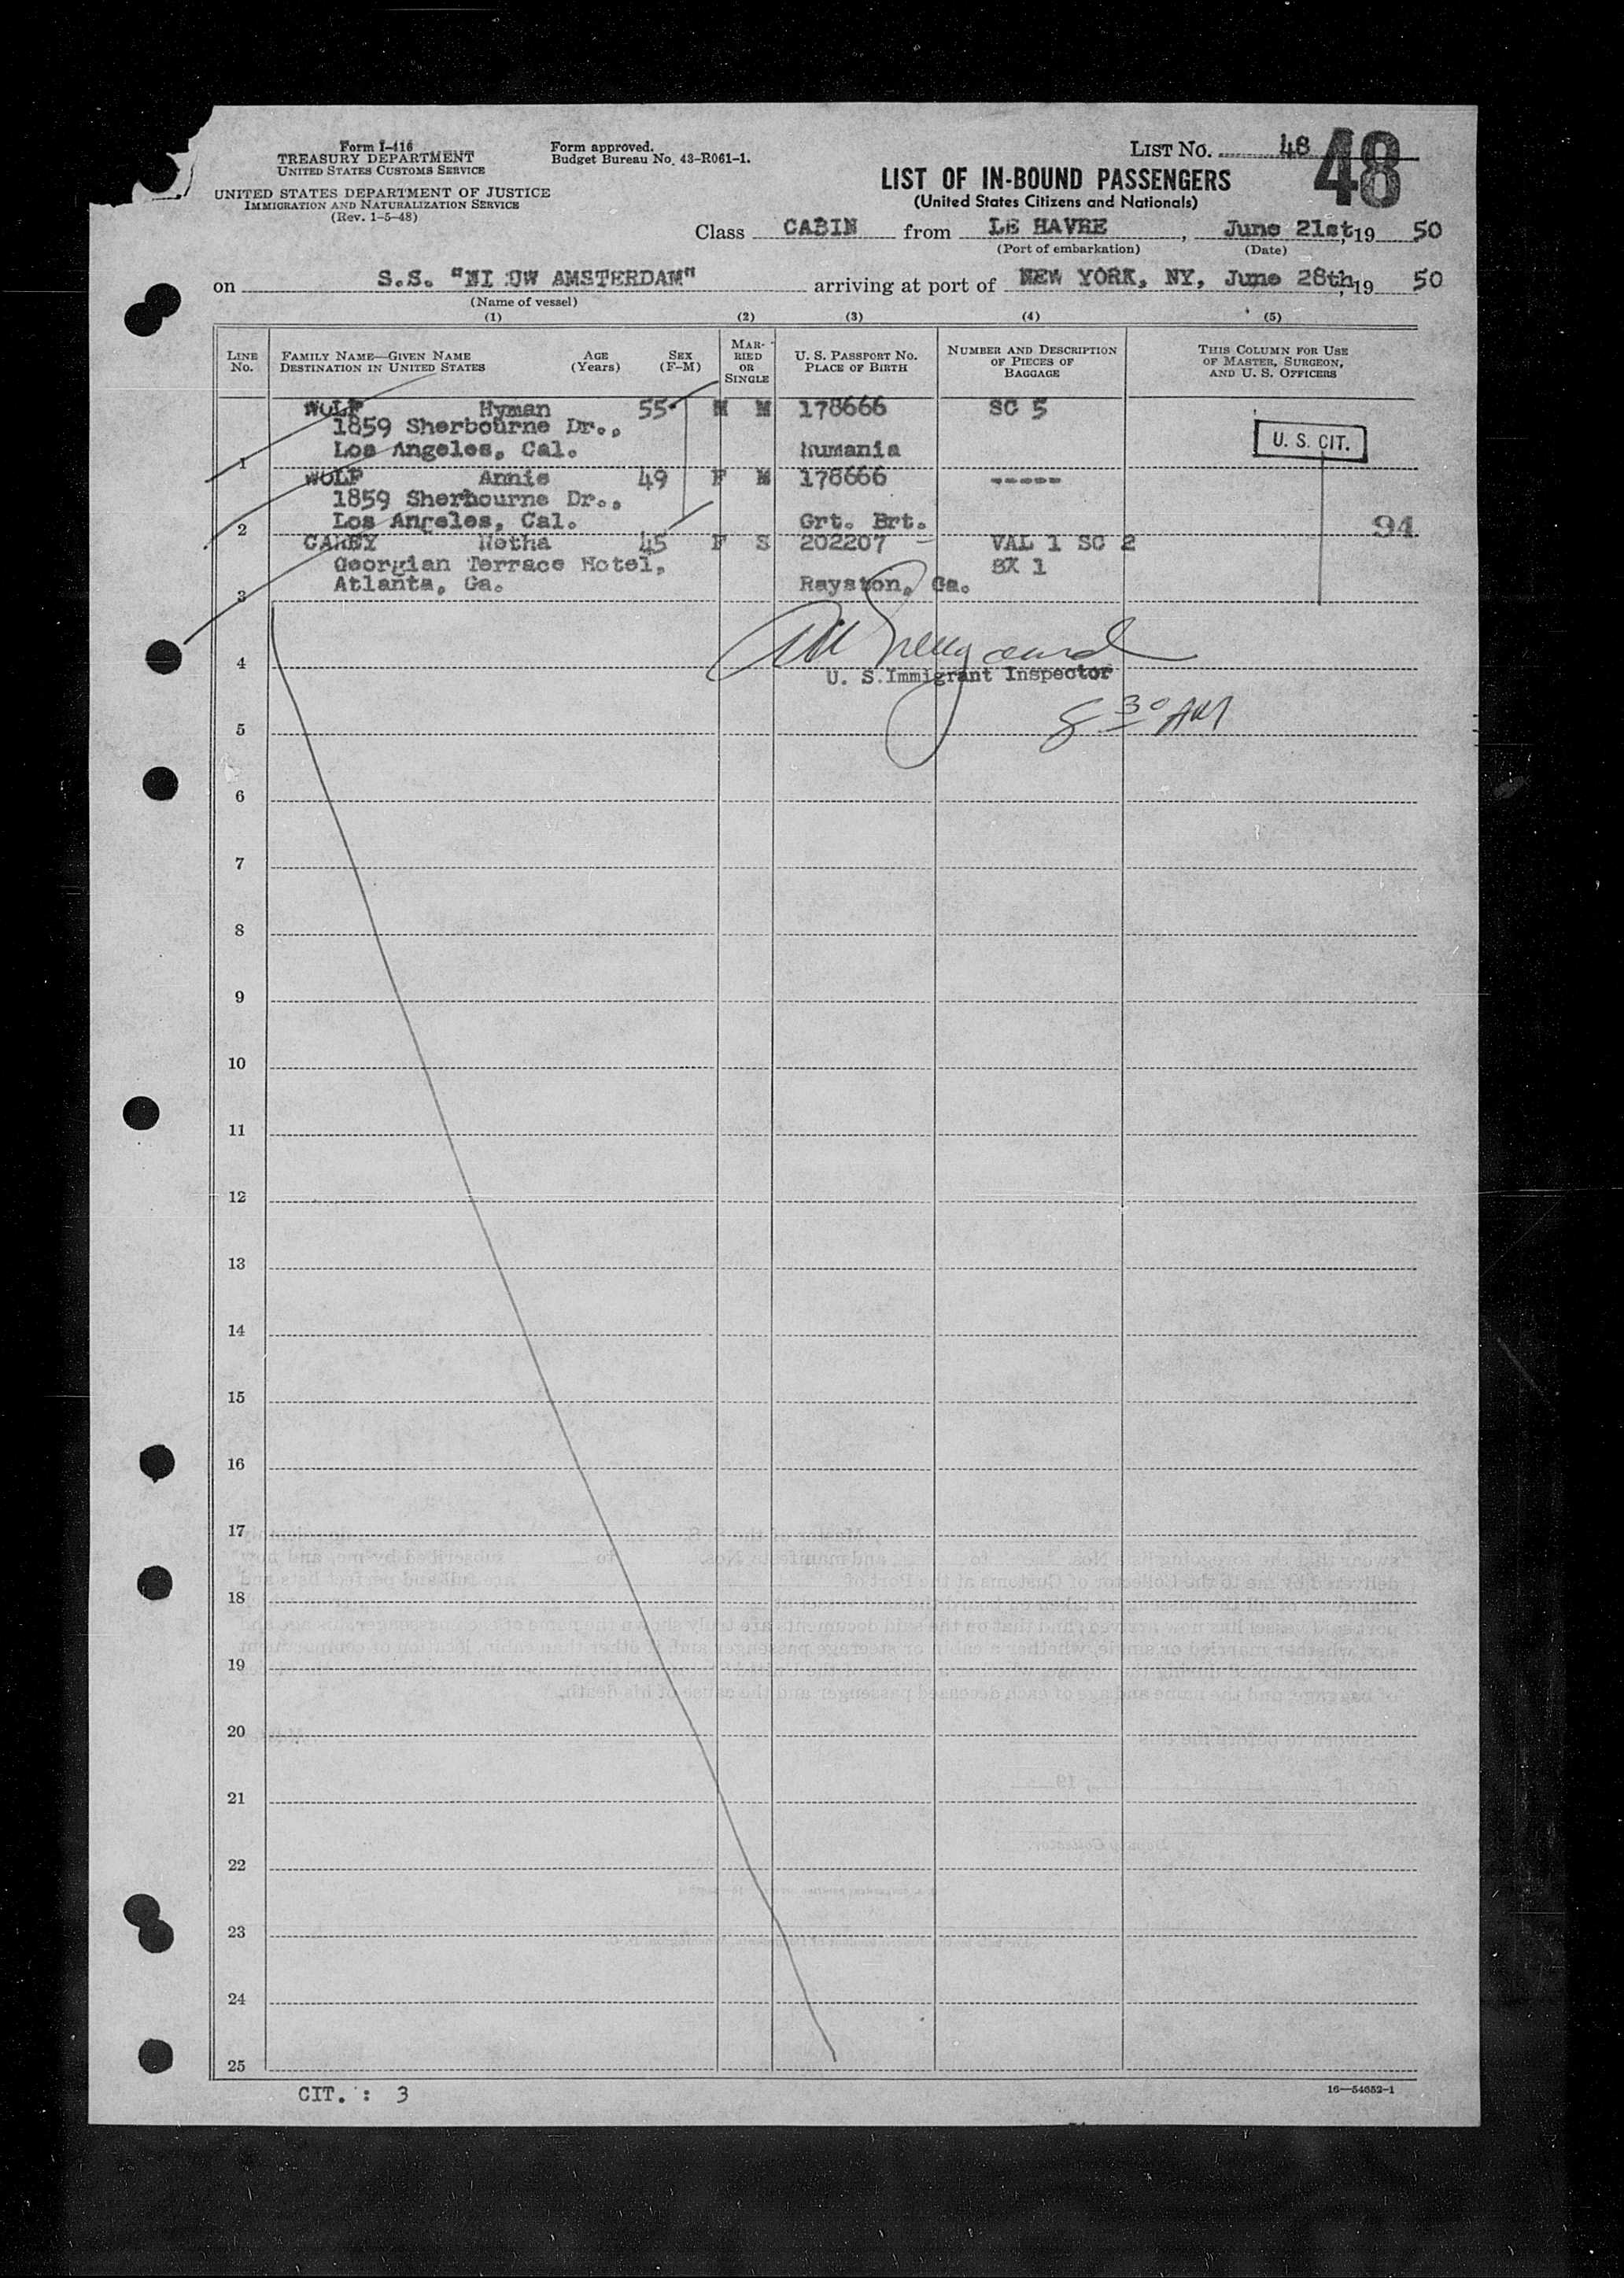 Form I-416
TREASURY DEPARTMENT
UNITED STATES CUSTOMS SERVICE
UNITED STATES DEPARTMENT OF JUSTICE
IMMIGRATION AND NATURALIZATION SERVICE
(Rev. 1-5-48)
Form approved.
Budget Bureau No. 43-R061-1.
LIST NO. 48
48
LIST OF IN-BOUND PASSENGERS
(United States Citizens and Nationals)
Class CABIN from LE HAVRE, June 21st, 19 50
(Port of embarkation) (Date)
on S.S. "NI UW AMSTERDAM" arriving at port of NEW YORK, NY, June 28th, 19 50
(Name of vessel)
(1) (2) (3) (4) (5)
LINE No. FAMILY NAME—GIVEN NAME DESTINATION IN UNITED STATES AGE (Years) SEX (F-M) MARRIED OR SINGLE U. S. PASSPORT NO. PLACE OF BIRTH NUMBER AND DESCRIPTION OF PIECES OF BAGGAGE THIS COLUMN FOR USE OF MASTER, SURGEON, AND U. S. OFFICERS
WOLF Hyman 55 M M 178666 SC 5
1859 Sherbourne Dr.,
U. S. CIT.
Los Angeles, Cal. Rumania
1
WOLF Annie 49 F M 178666 -----
1859 Sherbourne Dr.,
Los Angeles, Cal. Grt. Brt. 94
2
CAREY Netha 45 F S 202207 - VAL 1 SC 2
Georgian Terrace Hotel, BX 1
Atlanta, Ga. Rayston, Ga.
3
4
U. S. Immigrant Inspector
8 30 AM
5
6
7
8
9
10
11
12
13
14
15
16
17
18
19
20
21
22
23
24
25
CIT. : 3
16—54652-1